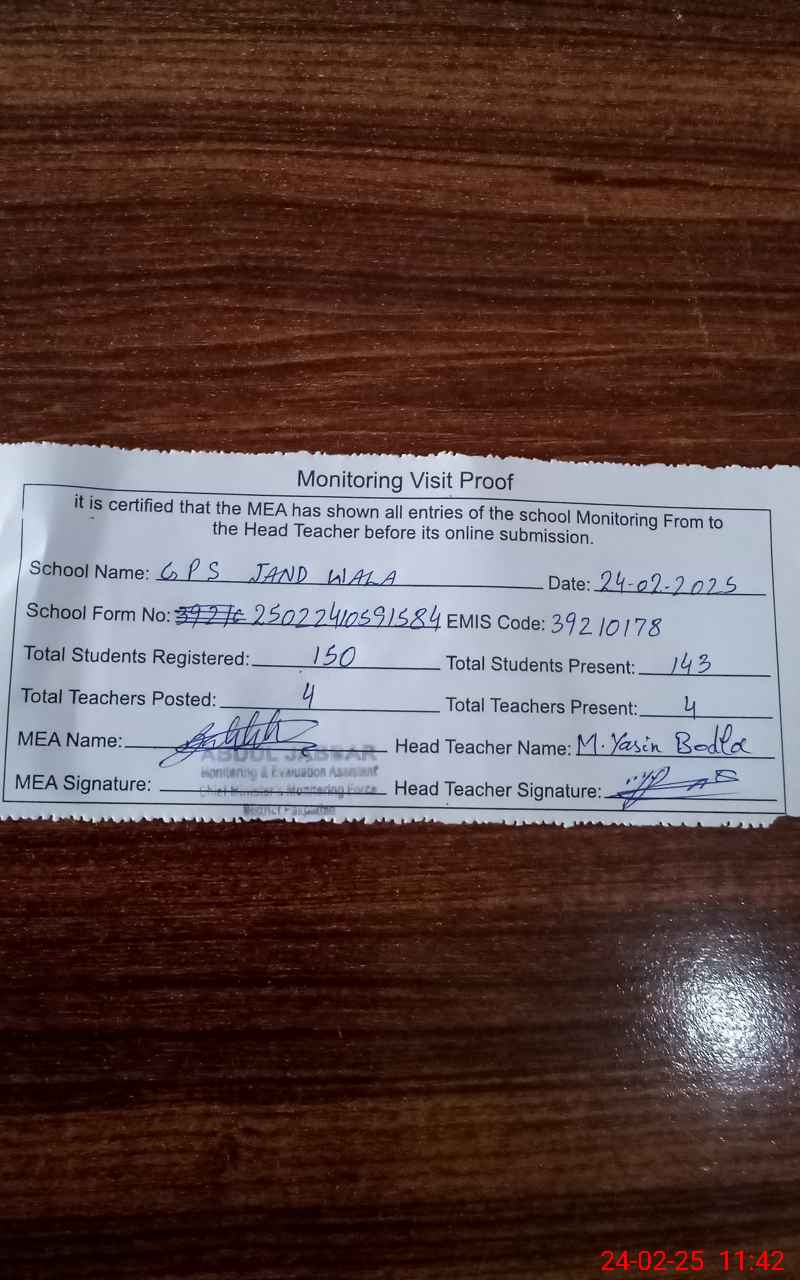 Monitoring Visit Proof
it is certified that the MEA has shown all entries of the school Monitoring From to
the Head Teacher before its online submission.
School Name: GPS JAND WALA Date: 24-02-2025
School Form No: 25022410591584 EMIS Code: 39210178
Total Students Registered: 150 Total Students Present: 143
Total Teachers Posted: 4 Total Teachers Present: 4
MEA Name: Head Teacher Name: M. Yasin Bodla
ABDUL JABBAR
Monitoring & Evaluation Assistant
MEA Signature: Head Teacher Signature:
Chief Minister's Monitoring Force
District Pakpattan
24-02-25 11:42